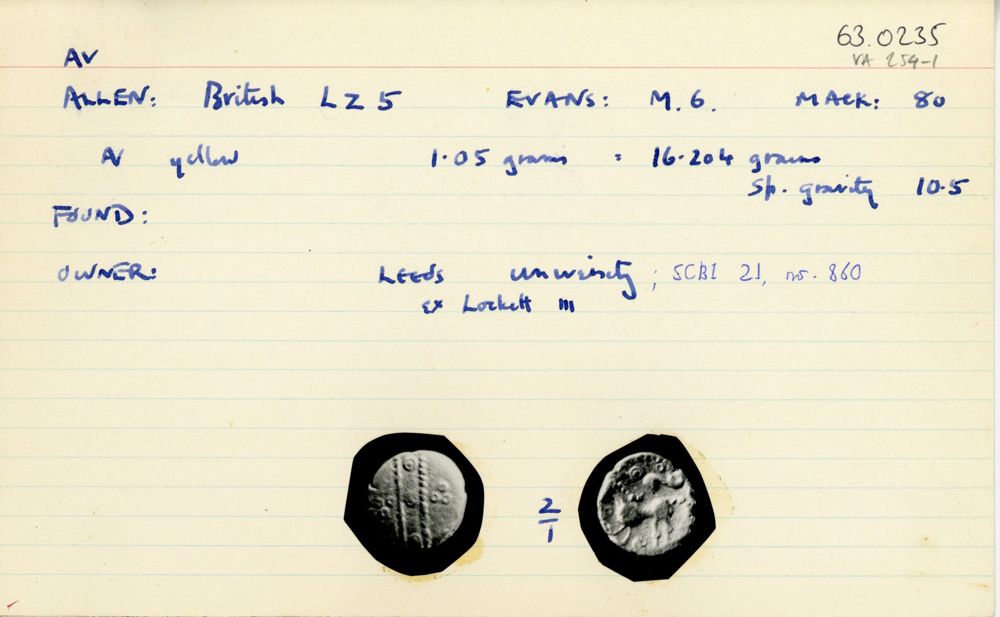 63.0235
VA 254-1
AV
ALLEN: British LZ 5 EVANS: M. 6. MACK: 80
AV yellow 1.05 grams = 16.204 grains
Sp. gravity 10.5
FOUND:
OWNER: LEEDS University ; SCBI 21, no. 860
ex Lockett III
2
1